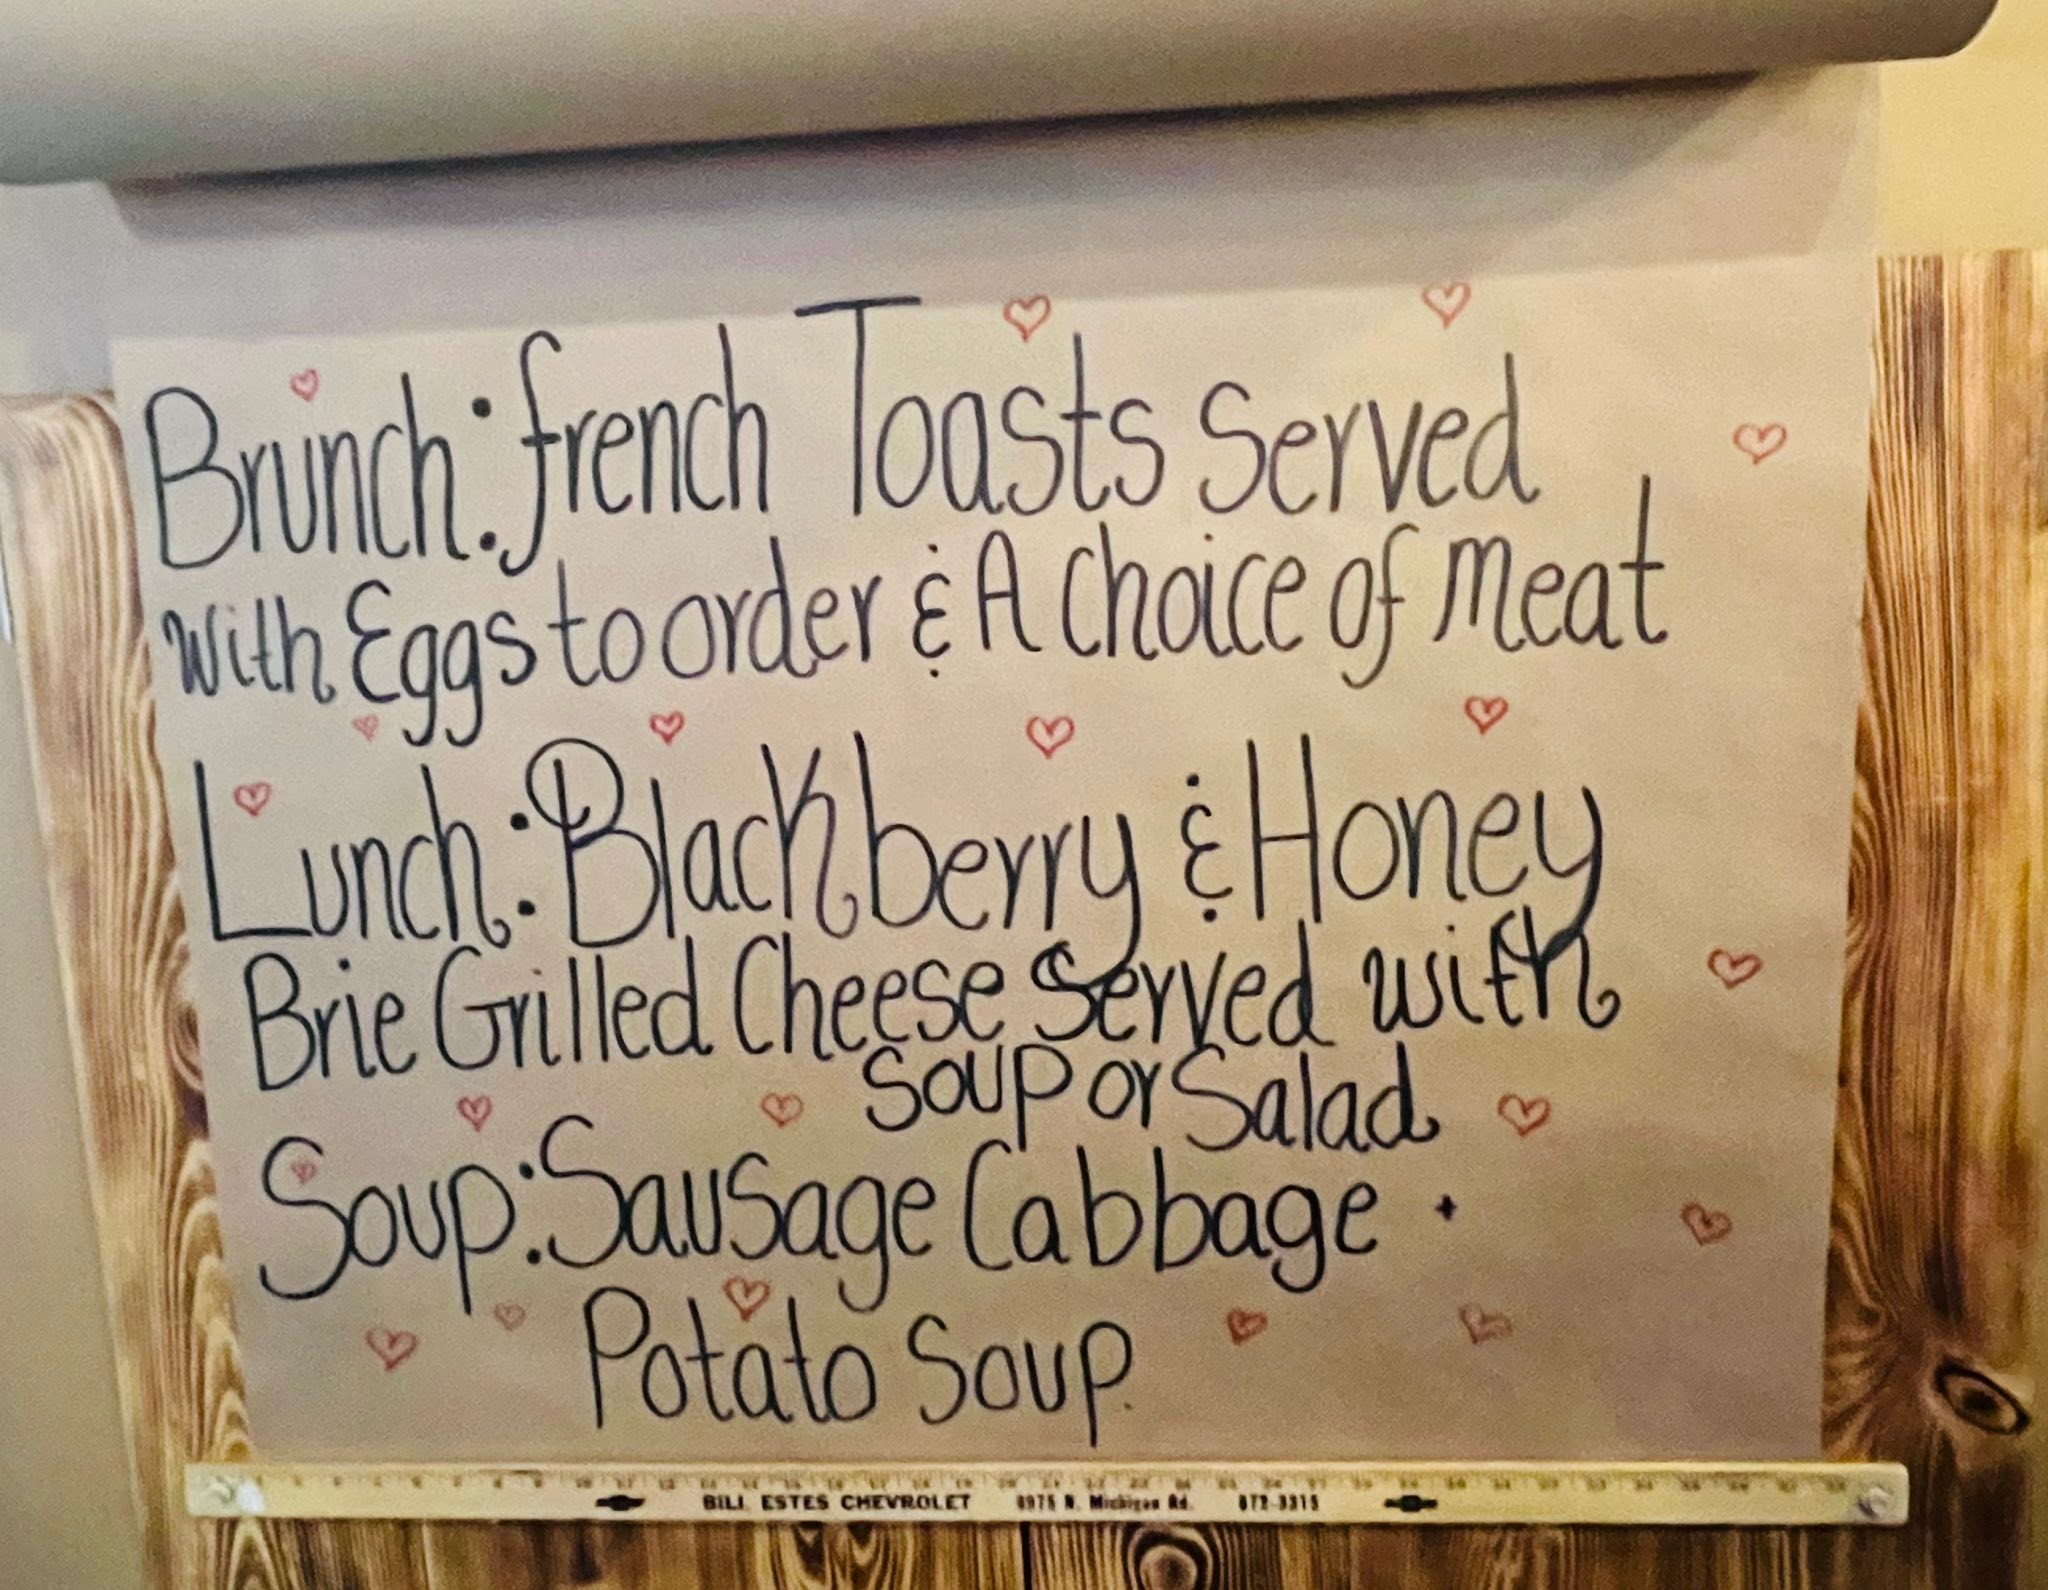 Brunch: french Toasts Served
with Eggs to order & A choice of meat
Lunch: Blackberry & Honey
Brie Grilled Cheese Served with
soup or Salad
Soup: Sausage Cabbage
Potato Soup.
BILL ESTES CHEVROLET N. Michigan Rd. 872-3315